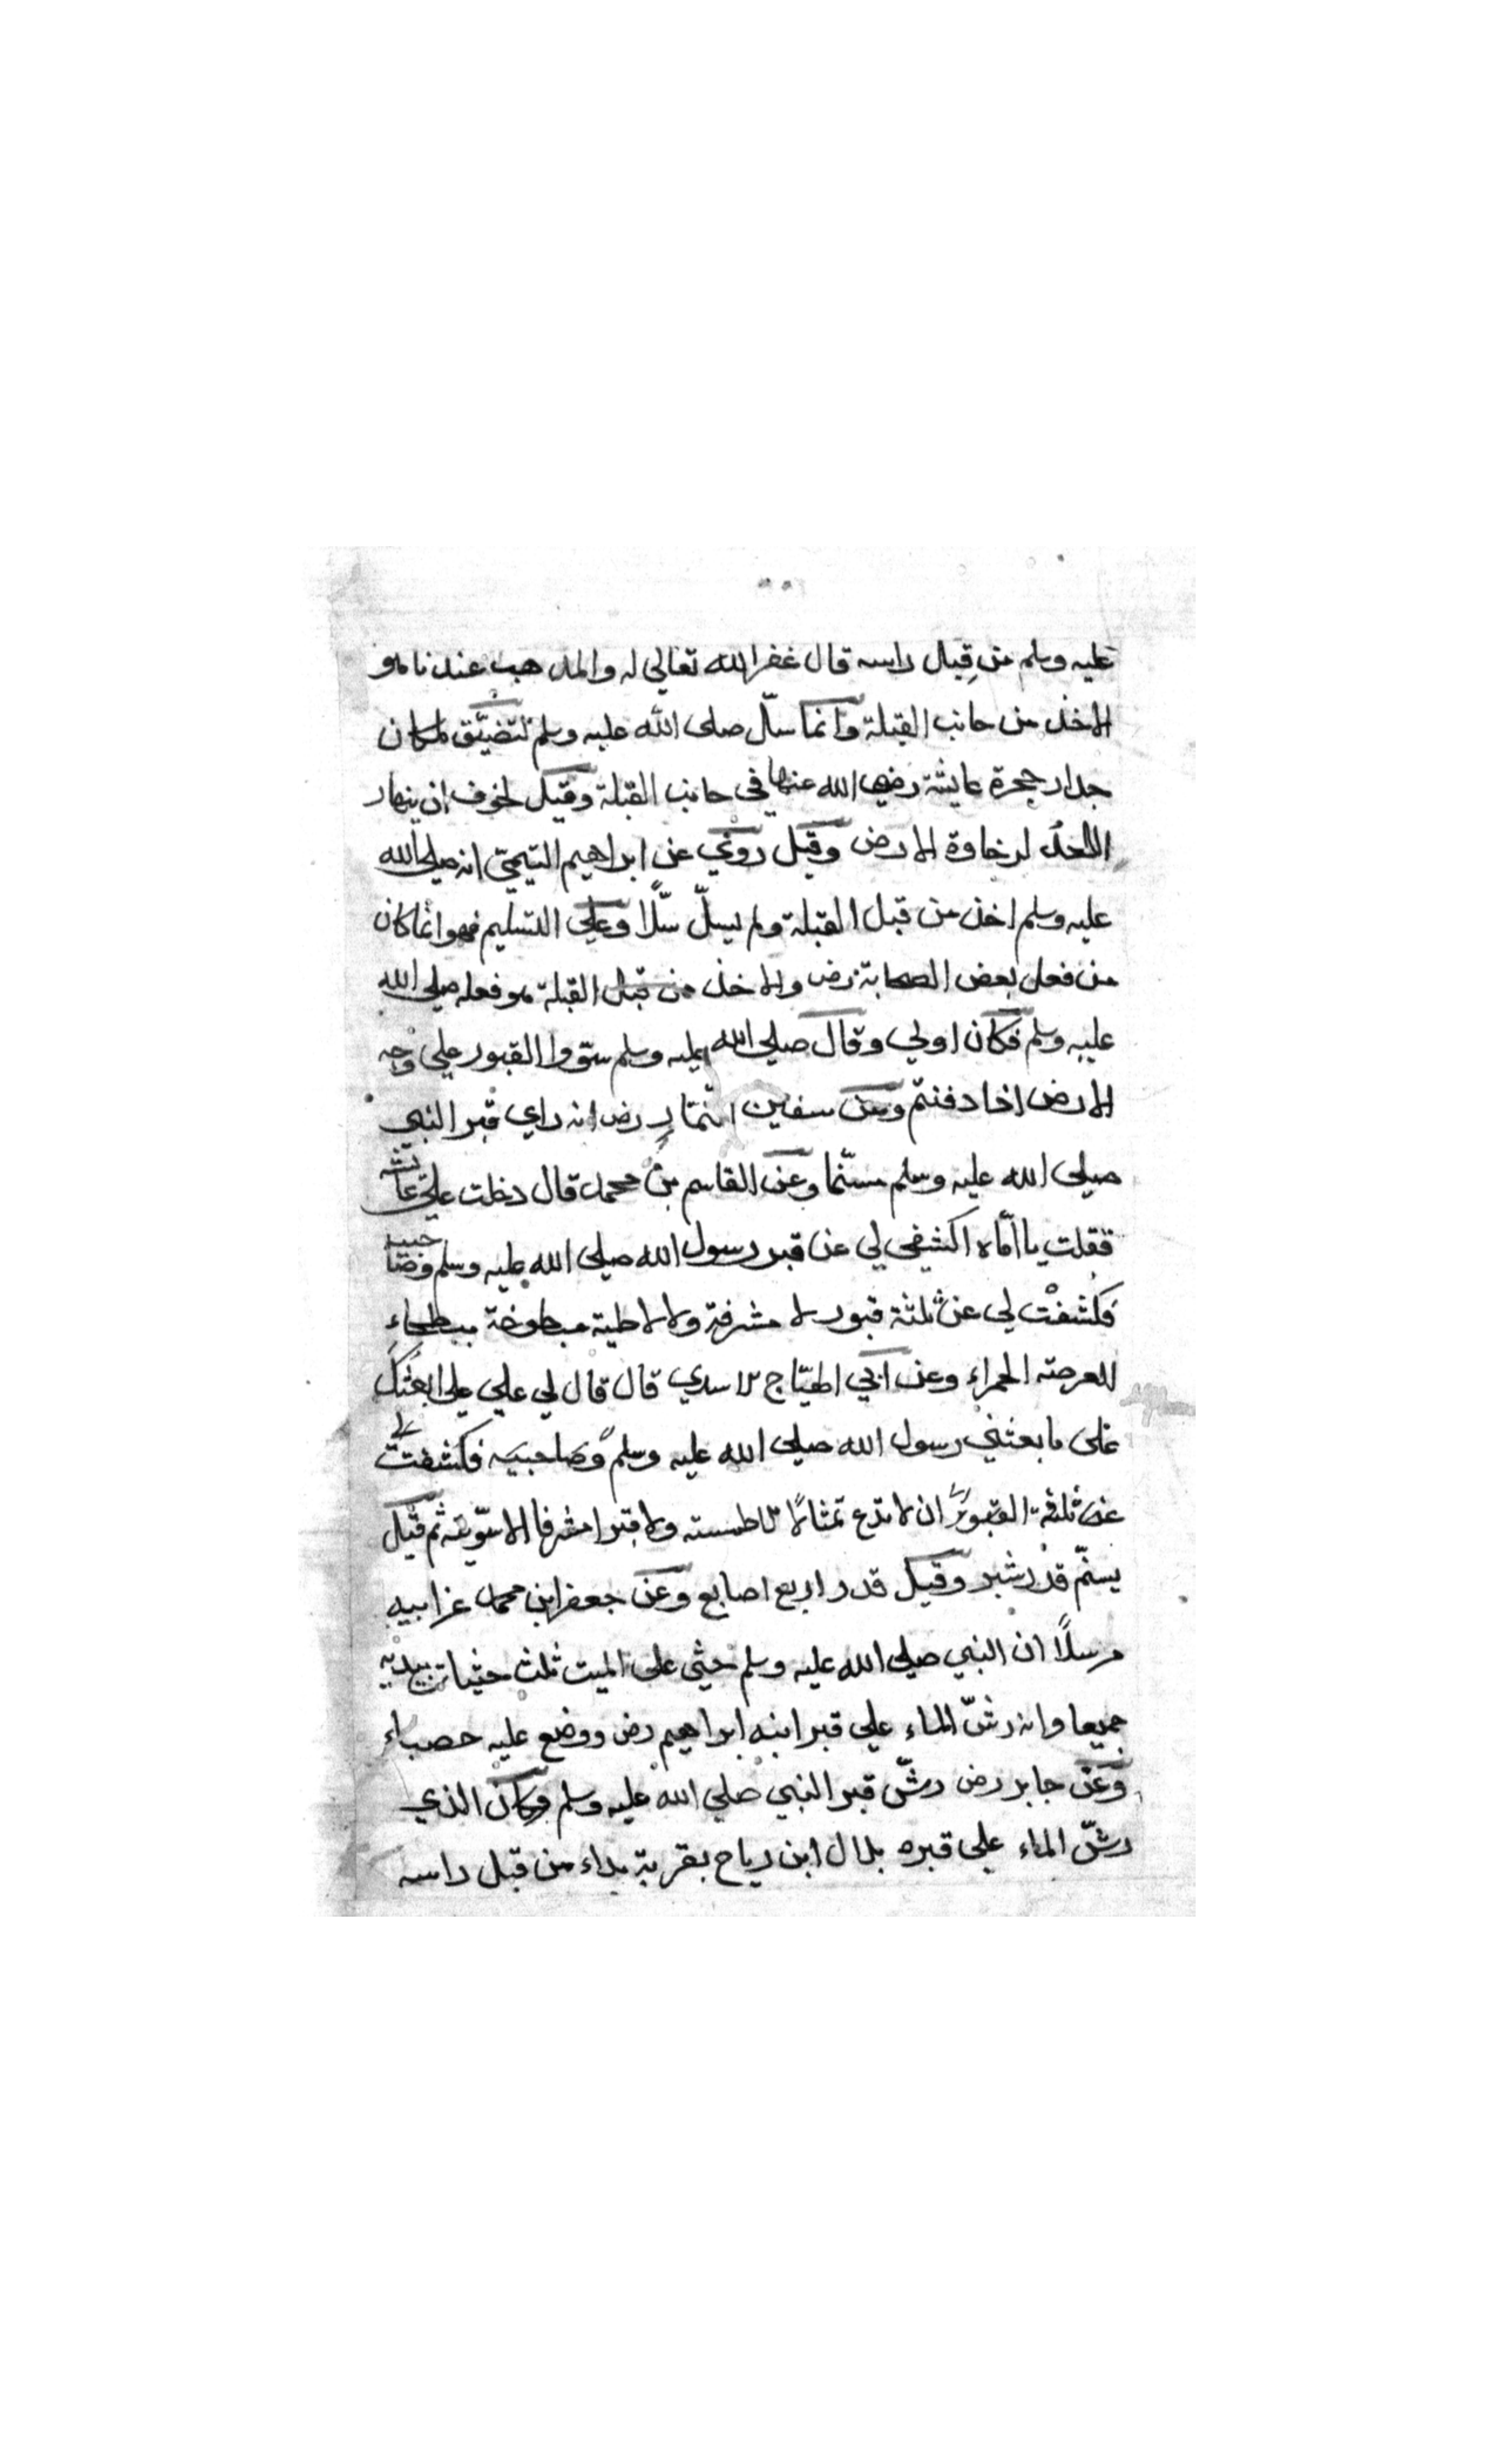 عليه وسلم من قِبل راسه قال غفر الله تعالي له والمذهب عندنا هو
الاخذ من جانب القبلة وانما سلّ صلى الله عليه وسلم لتضيّق المكان
جدار حجرة عايشة رضي الله عنها في جانب القبلة وقيل لخوف ان ينهار
اللحد لرخاوة الارض وقيل روي عن ابراهيم التيمي انه صلي الله
عليه وسلم اخذ من قبل القبلة ولم يسلّ سلّا وعلي التسليم فهو انما كان
من فعل بعض الصحابة رض والاخذ من قبل القبلة هو فعله صلي الله
عليه وسلم فكان اولي وقال صلي الله عليه وسلم سووا القبور علي وجه
الارض اذا دفنتم وعن سفين التمار رض انه راي قبر النبي
صلي الله عليه وسلم مسنّما وعن القاسم بن محمد قال دخلت علي عايشة
فقلت يا امّاه اكشفي لي عن قبر رسول الله صلي الله عليه وسلم وصاحبيه
فكشفت لي عن ثلثة قبور لا مشرفة ولا لاطية مبطوخة ببطحاء
العرصة الحمراء وعن ابي الهيّاج الاسدي قال قال لي علي علي ابعثك
على ما بعثني رسول الله صلي الله عليه وسلم وصاحبيه فكشفت لي
عن ثلثة القبور ان لا تدع تمثالًا الا طمسته ولا قبرا مشرفا الا سوّيته ثم قيل
يسنّم قدر شبر وقيل قدر اربع اصابع وعن جعفر ابن محمد عن ابيه
مرسلًا ان النبي صلي الله عليه وسلم حثى على الميت ثلث حثيات بيديه
جميعا وانه رشّ الماء علي قبر ابنه ابراهيم رض ووضع عليه حصباء
وعن جابر رض رشّ قبر النبي صلي الله عليه وسلم وكان الذي
رشّ الماء علي قبره بلال ابن رباح بقربة بداء من قبل راسه